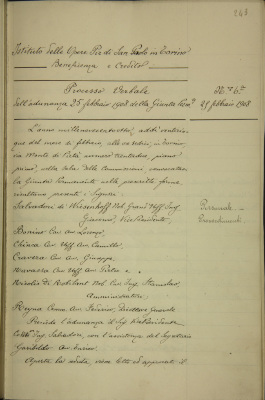 263
Istituto delle Opere Pie di San Paolo in Torino
Beneficenza e Credito
Processo Verbale
dell'adunanza 25 febbraio 1908 della Giunta
25 febbraio 1908
L'anno millenovecentootto, addì venticin-
que del mese di febbraio, alle ore sedici, in Torino,
via Monte di Pietà numero trentadue, piano
primo, nella sala delle Commissioni, convocatasi
la Giunta Permanente nelle prescritte forme,
risultano presenti i Signori:
Salvadori di Wiesenhoff Nob. Grand'Uff. Ing.
Giovanni, Vice Presidente
Personale
Provvedimenti
Cav. Avv. Lorenzo
Chiesa Cav. Uff. Avv. Camillo
Cravero Cav. Avv. Giuseppe
Cav. Uff. Avv. Pietro e
di Nob. Cav. Ing. Stanislao,
Amministratori;
Regna Comm. Avv. Federico, Direttore Generale
Presiede l'adunanza il Sig. Vice Presidente
Ing. Salvadori, con l'assistenza del Segretario
Garibaldo Avv.
Aperta la seduta, viene letto ed approvato il